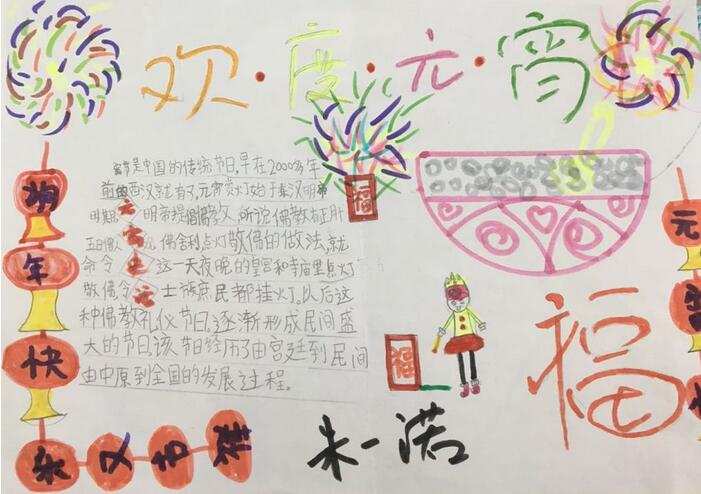 欢·度·元·宵
元宵是中国的传统节日,早在2000多年
前的西汉就有了,元宵赏灯始于东汉明帝
时期,明帝提倡佛教,听说佛教有正月
五日僧人 佛舍利点灯敬佛的做法,就
命令 这一天夜晚的皇宫和寺庙里点灯
敬佛,令 士族庶民都挂灯,以后这
种佛教礼仪节日,逐渐形成民间盛
大的节日,该节日经历了由宫廷到民间
由中原到全国的发展过程。
福
福
福
狗年快乐又吉祥
元宵快
朱一诺